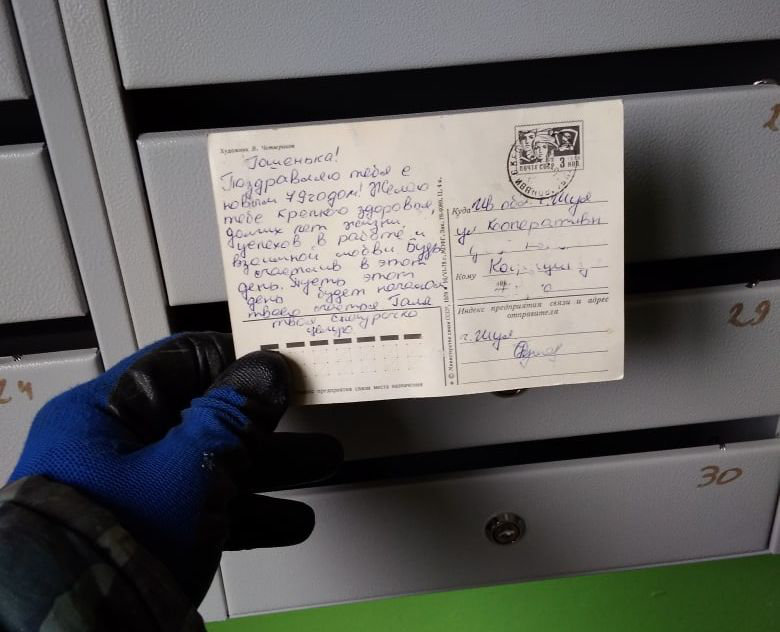 Художник В. Четвериков
Гошенька!
Поздравляю тебя с
новым 79 годом! Желаю
тебе крепкого здоровья,
долгих лет жизни,
успехов в работе и
взаимной любви Будь
счастлив в этот
день. Пусть этот
день будет началом
твоего счастья Гала
твоя
целую.
ПОЧТА СССР 3 КОП
Куда Ив обл г. Шуя
ул Кооперативн
Кому
Индекс предприятия связи и адрес
отправителя
г. Шуя
предприятия связи места назначения
© Министерство связи СССР,
24
29
30